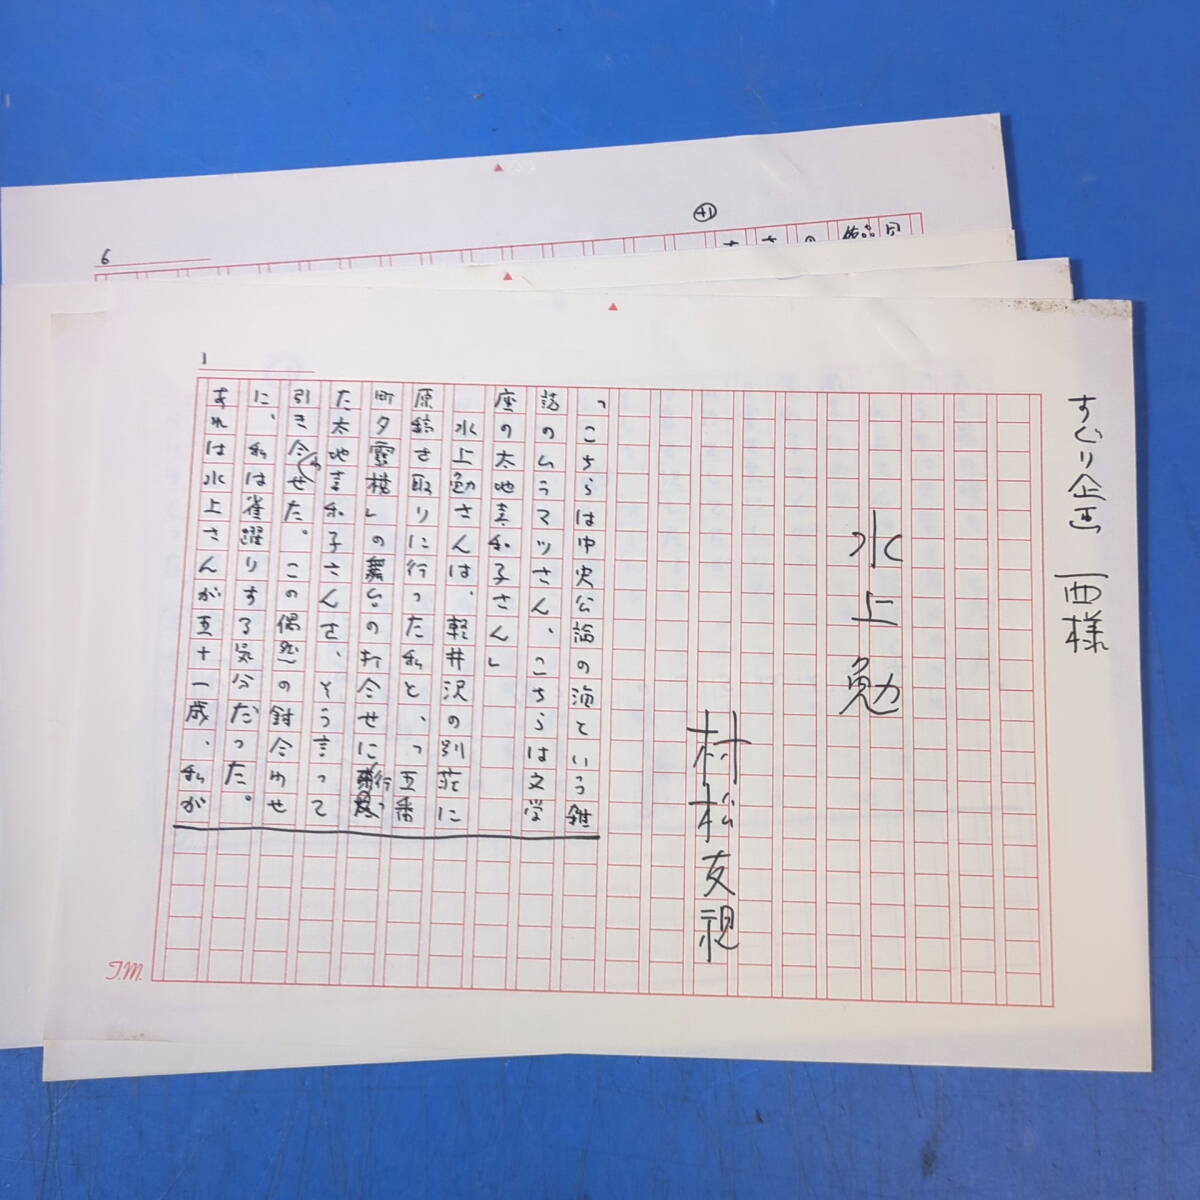 すばり企画 西様
水上勉
村松友視
1
「こちらは中央公論の海という雑
誌のムラマツさん、こちらは文学
座の太地喜和子さん」
水上勉さんは、軽井沢の別荘に
原稿を取りに行った私と、「五番
町夕霧楼」の舞台の打合せに行っ
た太地喜和子さんを、そう言って
引き合わせた。この偶然の封合わせ
に、私は雀躍りする気分だった。
あれは水上さんが五十一歳、私が
T.M.
6
41